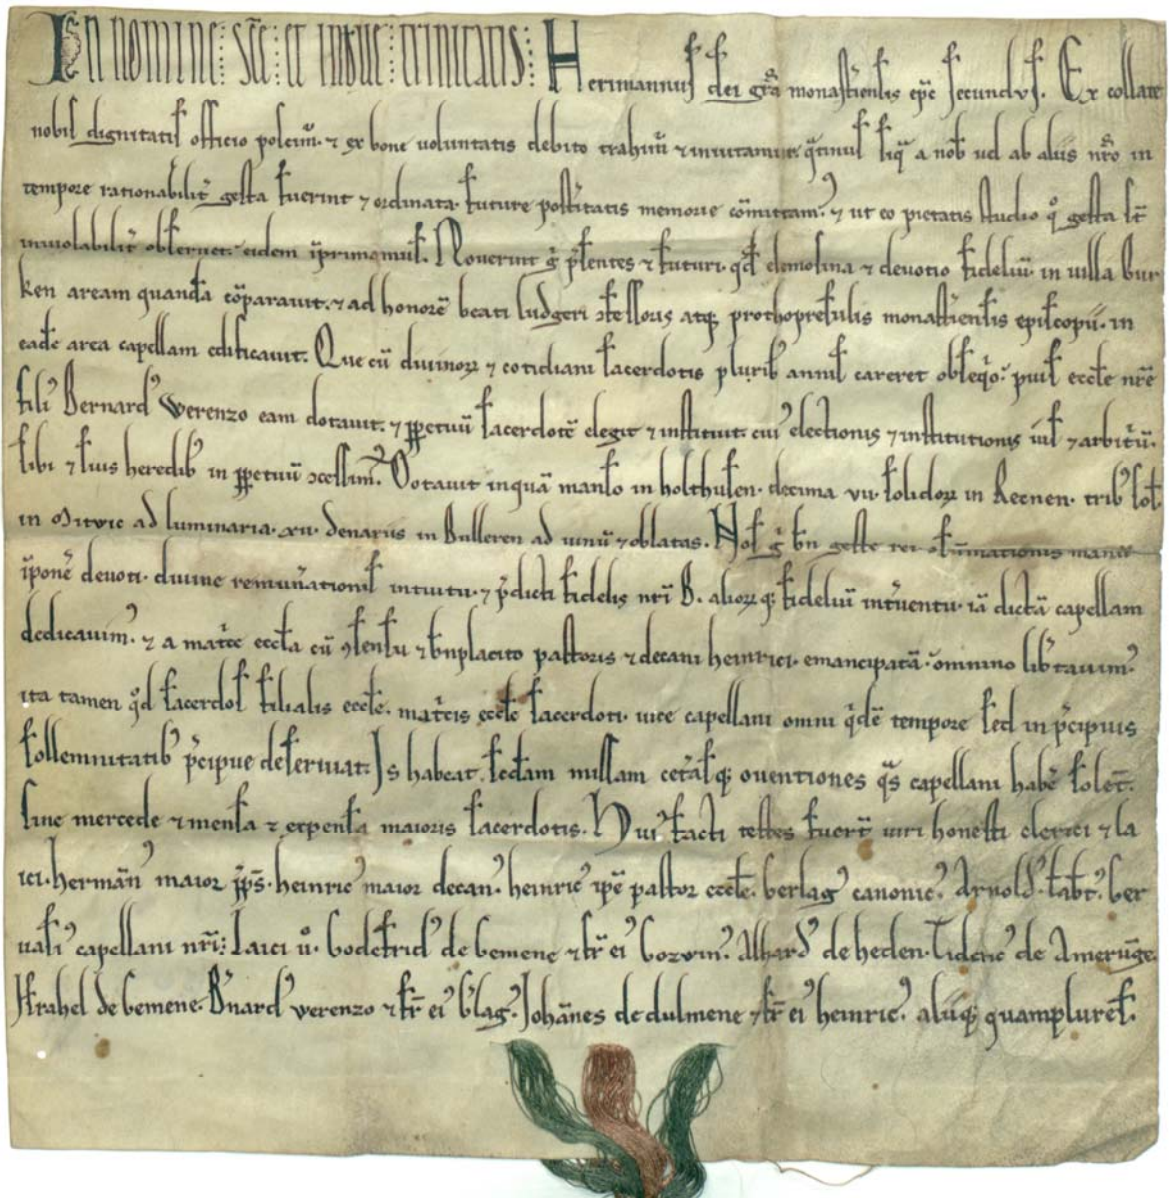 In nomine sc̄e et indiuidue trinitatis. Hermannus dei gr̄a monast̄iensis ep̄c secundus. Ex collate
nobis dignitatis officio poscim̄. ⁊ ex bone uoluntatis debito trahim̄ ⁊ inuitamur. q̄tinus siq̄ a nob̄ uel ab aliis nr̄o in
tempore rationabilit̄ gesta fuerint ⁊ ordinata. future post̄itatis memorie cōmittam᾿. ⁊ ut eo pietatis studio q̊ gesta st̄
inuiolabilit̄ obseruet. eidem īprimam᾿. Nouerint g̊ p̄sentes ⁊ futuri. qd̄ elemosina ⁊ deuotio fideliū in uilla bur
ken aream quanda cōparauit. ⁊ ad honorē beati ludgeri ɔfessoris atq; prothopresulis monast̄iensis episcopii. in
eadē area capellam edificauit. Que cū diuinoꝝ ⁊ cotidiani sacerdotis plurib᾿ annis careret obseq̊o. pius eccl̄e nr̄e
fili᾿ Bernard᾿ Werenzo eam dotauit. ⁊ ꝑpetuū sacerdotē elegit ⁊ instituit. cui᾿ electionis ⁊ institutionis ius ⁊ arbitriū.
sibi ⁊ suis heredib᾿ in ꝑpetuū ɔcessim᾿. Dotauit inquā manso in holthusen. decima vii. solidoꝝ in Reknen. trib᾿ sol̄
in Mitwic ad luminaria. xii. denariis in Bulleren ad uinū ⁊ oblatas. Nos g̊ bn̄ geste rei ɔfirmationis manū
īponē deuoti. diuine remun̄ationis intuitu. ⁊ p̄dicti fidelis nr̄i B. alioꝝq; fideliū int̄uentu. iā dictā capellam
dedicauim᾿. ⁊ a matrice eccl̄a cū ɔsensu ⁊ bn̄placito pastoris ⁊ decani heinrici. emancipatā. omnino lib̄tauim᾿.
ita tamen qd̊ sacerdos filialis eccl̄e. mat̄cis eccl̄e sacerdoti. uice capellani omni q̊dē tempore sed in p̄cipuis
sollemnitatib᾿ p̄cipue deseruiat. Is habeat. secdam missam cet̄asq; ouentiones q̄s capellani habē solēt.
siue mercede ⁊ mensa ⁊ expensa maioris sacerdotis. Hui᾿ facti testes fuer̄t uiri honesti clerici ⁊ la
ici. hermān᾿ maior p̄ps̄. heinric᾿ maior decan᾿. heinric᾿ ipē pastor eccl̄e. berlag᾿ canonic᾿. Arnold᾿. fabr̄. ber
uasi᾿ capellani nr̄i: Laici ů. Godefrid᾿ de bemene ⁊ fr̄ ei᾿ Gozvin᾿. Alhard᾿ de heden. Tideric᾿ de Amerūge.
Israhel de bemene. Bn̄ard᾿ werenzo ⁊ fr̄ ei᾿ b̄lag᾿. Johānes de dulmene ⁊ fr̄ ei᾿ heinric᾿. aliiq; quamplures.